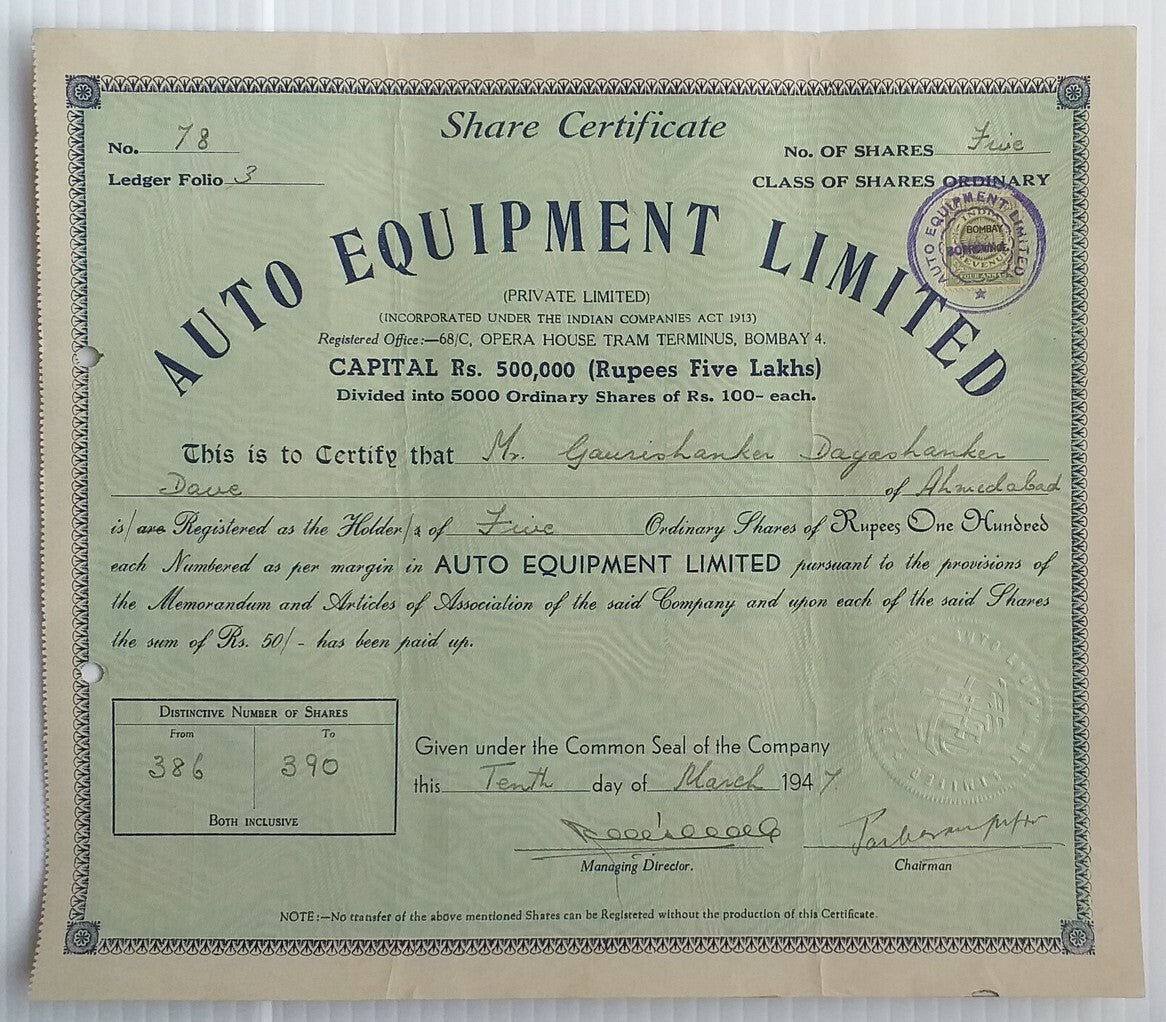 Share Certificate
No. 78
No. OF SHARES Five
Ledger Folio 3
CLASS OF SHARES ORDINARY
AUTO EQUIPMENT LIMITED
AUTO EQUIPMENT LIMITED
INDIA
BOMBAY
REVENUE
FOUR ANNAS
(PRIVATE LIMITED)
(INCORPORATED UNDER THE INDIAN COMPANIES ACT 1913)
Registered Office:—68/C, OPERA HOUSE TRAM TERMINUS, BOMBAY 4.
CAPITAL Rs. 500,000 (Rupees Five Lakhs)
Divided into 5000 Ordinary Shares of Rs. 100- each.
This is to Certify that Mr. Gaurishanker Dayashanker
Dave of Ahmedabad
is/are Registered as the Holder/s of Five Ordinary Shares of Rupees One Hundred
each Numbered as per margin in AUTO EQUIPMENT LIMITED pursuant to the provisions of
the Memorandum and Articles of Association of the said Company and upon each of the said Shares
the sum of Rs. 50/- has been paid up.
DISTINCTIVE NUMBER OF SHARES
From To
386 390
BOTH INCLUSIVE
Given under the Common Seal of the Company
this Tenth day of March 1947.
Managing Director.
Chairman
NOTE:—No transfer of the above mentioned Shares can be Registered without the production of this Certificate.